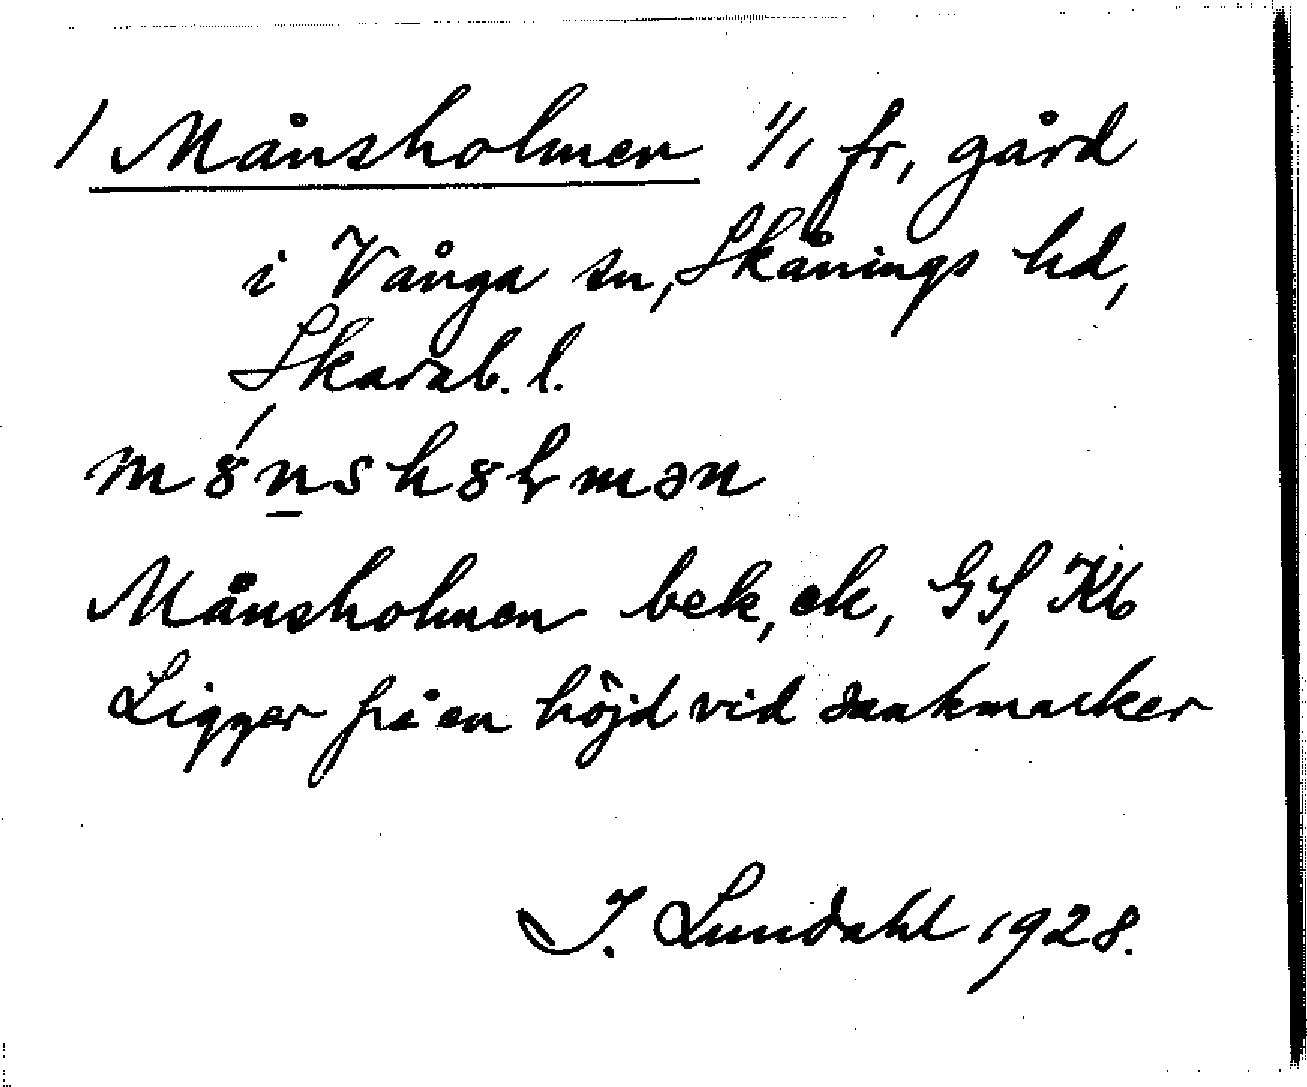 / Månsholmen 1/1 fr, gård
i Vånga sn, Skånings hd,
Skarab. l.
Månsholmen bek, ek, GS, Kb
Ligger på en höjd vid sankmarker
I. Lundahl 1928.